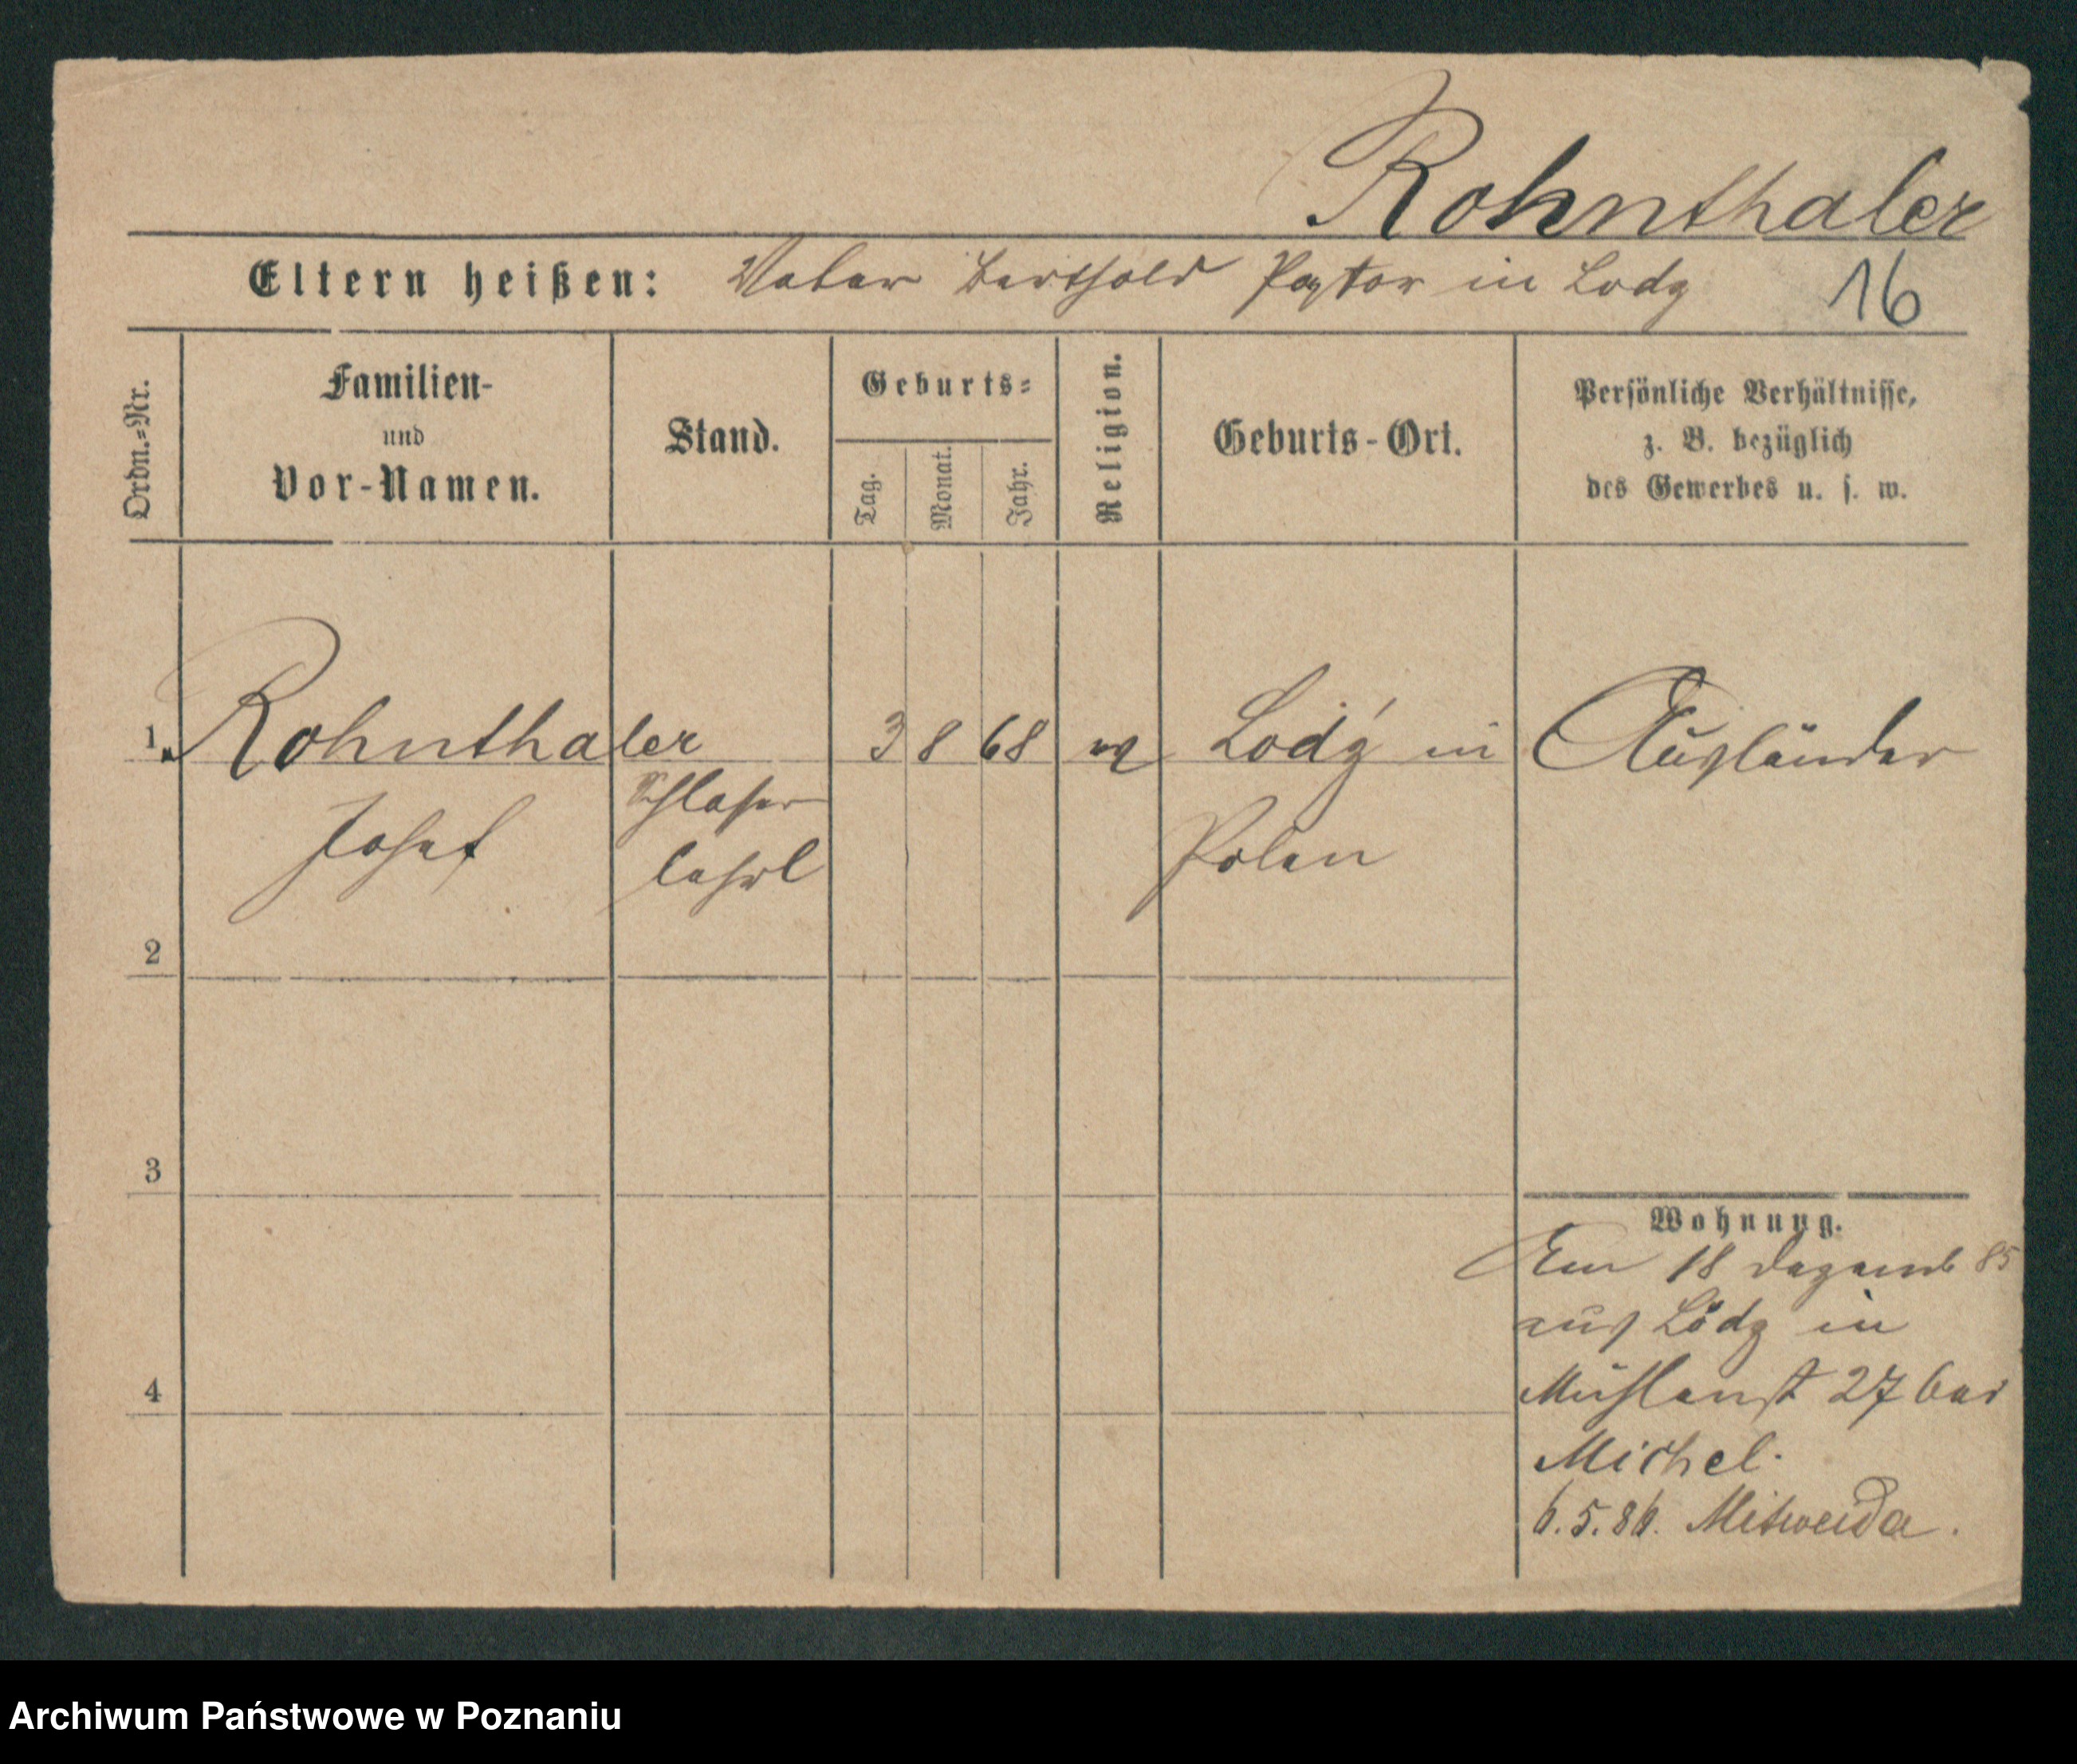 Rohnthaler
Eltern heißen: Vater Berthold Pastor in Lodz 16
Ordn.-Nr.
Familien-
und
Vor-Namen.
Stand.
Geburts-
Tag.
Monat.
Jahr.
Religion.
Geburts-Ort.
Persönliche Verhältnisse,
z. B. bezüglich
des Gewerbes u. s. w.
1. Rohnthaler 3 8 68 Lodź in Ausländer
Josef
Schlosser
lehrl
Polen
2
3
4
Wohnung.
Am 18 Dezemb 85
aus Lodz in
Mühlenst 27 bei
Michel.
6.5.86. Mitweida.
Archiwum Państwowe w Poznaniu